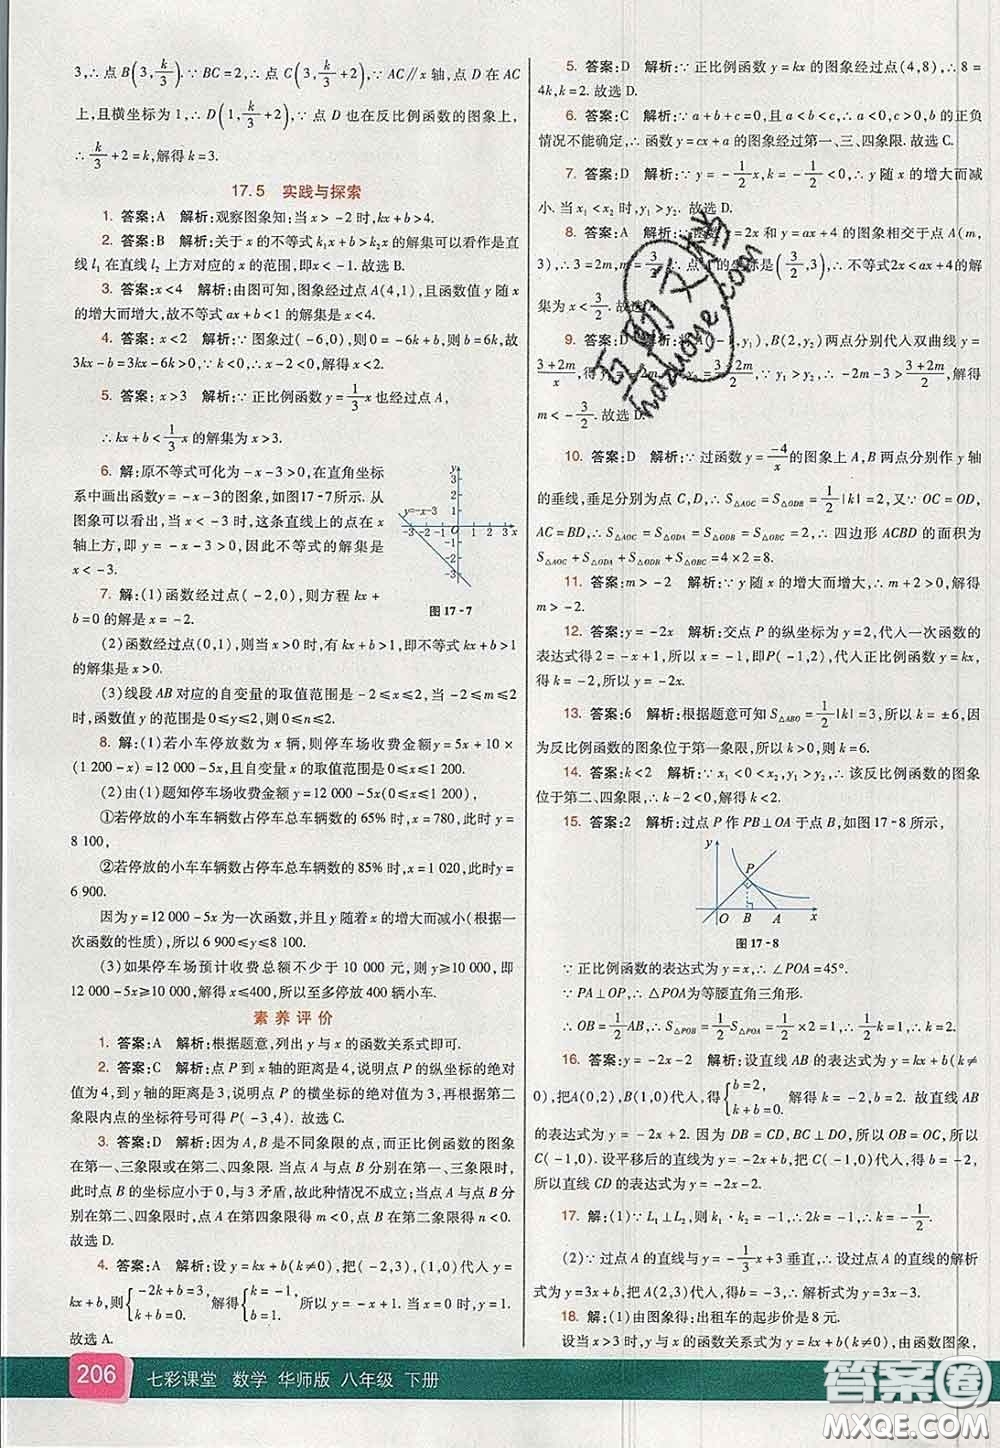 3,∴点B(3,k/3).∵BC=2,∴点C(3,k/3+2),∵AC∥x轴,点D在AC
上,且横坐标为1,∴D(1,k/3+2),∵点D也在反比例函数的图象上,
∴k/3+2=k,解得k=3.
17.5 实践与探索
1. 答案:A 解析:观察图象知:当x>-2时,kx+b>4.
2. 答案:B 解析:关于x的不等式k₁x+b>k₂x的解集可以看作是直
线l₁在直线l₂上方对应的x的范围,即x<-1.故选B.
3. 答案:x<4 解析:由图可知,图象经过点A(4,1),且函数值y随x
的增大而增大,故不等式ax+b<1的解集为x<4.
4. 答案:x<2 解析:∵图象过(-6,0),则0=-6k+b,则b=6k,故
3kx-b=3kx-6k>0,∵k<0,∴x-2<0,解得:x<2.
5. 答案:x>3 解析:∵正比例函数y=1/3x也经过点A,
∴kx+b<1/3x的解集为x>3.
6. 解:原不等式可化为-x-3>0,在直角坐标
系中画出函数y=-x-3的图象,如图17-7所示.从
图象可以看出,当x<-3时,这条直线上的点在x
轴上方,即y>0,因此不等式的解集为x<-3.
y=-x-3
图17-7
7. 解:(1)函数经过点(-2,0),则方程kx+
b=0的解是x=-2.
(2)函数经过点(0,1),则当x>0时,有kx+b>1,即不等式kx+b>1
的解集是x>0.
(3)线段AB对应的自变量的取值范围是-2≤x≤2,当-2≤m≤2
时,函数值y的范围是0≤y≤2,则0≤n≤2.
8. 解:(1)若小车停放数为x辆,则停车场收费金额y=5x+10×
(1 200-x)=12 000-5x,自变量x的取值范围是0≤x≤1 200.
(2)由(1)题知停车场收费金额y=12 000-5x(0≤x≤1 200),
①若停放的小车车辆数占停车总车辆数的65%时,x=780,此时y=
8 100,
②若停放的小车车辆数占停车总车辆数的85%时,x=1 020,此时y=
6 900.
因为y=12 000-5x为一次函数,并且y随着x的增大而减小(根据一
次函数的性质),所以6 900≤y≤8 100.
(3)如果停车场预计收费总额不少于10 000元,则可得y=12 000-
5x≥10 000,解得x≤400,所以至多停放400辆小车.
素养评价
1. 答案:A 解析:根据题意,列出y与x的函数关系式即可.
2. 答案:C 解析:点P到x轴的距离是4,说明点P的纵坐标的绝对
值为4,到y轴的距离是3,说明点P的横坐标的绝对值为3,再根据第二
象限内点的坐标符号可得P(-3,4).故选C.
3. 答案:D 解析:因为A,B是不同象限的点,而正比例函数的图象
在第一、三象限或在第二、四象限.当点A与点B在第一、三象限时,
此时点B的纵坐标应小于0,与3矛盾,故此种情况不成立.当点A与点B分
别在第二、四象限时,由点A在第四象限得m<0,由点B在第二象限得n<0.
故选D.
4. 答案:A 解析:设y=kx+b(k≠0),把(-2,3),(1,0)代入y=
kx+b,则{-2k+b=3, k+b=0. 解得{k=-1, b=1. 所以y=-x+1,当x=0时,y=1.
故选A.
5. 答案:D 解析:∵正比例函数y=kx的图象经过点(4,8),∴8=
4k,k=2.故选D.
6. 答案:C 解析:∵a+b+c=0,且a<b<c,∴a<0,c>0,b的正负
情况不能确定,∴函数y=cx+a的图象经过第一、三、四象限.故选C.
7. 答案:D 解析:∵y=-1/2x,k=-1/2<0,∴y随x的增大而减
小.当x₁<x₂时,y₁>y₂.故选D.
8. 答案:A 解析:∵函数y=2x和y=ax+4的图象相交于点A(m,
3),∴3=2m,m=3/2,∴点A的坐标是(3/2,3),∴不等式2x<ax+4的解
集为x<3/2.故选A.
9. 答案:D 解析:将A(-1,y₁),B(2,y₂)两点分别代入双曲线y=
(3+2m)/x,得y₁=-2m-3,y₂=(3+2m)/2,∵y₁>y₂,∴-2m-3>(3+2m)/2,解得
m<-3/2.故选D.
10. 答案:D 解析:∵过函数y=-4/x的图象上A,B两点分别作y轴
的垂线,垂足分别为点C,D,∴S△AOC=S△ODB=1/2|k|=2,又∵OC=OD,
AC=BD,∴S△AOC=S△ODA=S△ODB=S△OBC=2,∴四边形ACBD的面积为
S△AOC+S△ODA+S△ODB+S△OBC=4×2=8.
11. 答案:m>-2 解析:∵y随x的增大而增大,∴m+2>0,解得
m>-2.
12. 答案:y=-2x 解析:交点P的纵坐标为y=2,代入一次函数的
表达式得2=-x+1,所以x=-1,即P(-1,2),代入正比例函数y=kx,
得k=-2,所以y=-2x.
13. 答案:6 解析:根据题意可知S△ABO=1/2|k|=3,所以k=±6,因
为反比例函数的图象位于第一象限,所以k>0,所以k=6.
14. 答案:k<2 解析:∵x₁<0<x₂时,y₁>y₂,∴该反比例函数的图象
位于第二、四象限,∴k-2<0,解得k<2.
15. 答案:2 解析:过点P作PB⊥OA于点B,如图17-8所示,
y
P
O B A x
图17-8
∵正比例函数的表达式为y=x,∴∠POA=45°.
∵PA⊥OP,∴△POA为等腰直角三角形.
∴OB=1/2AB,∴S△POB=1/2S△POA=1/2×2=1,∴1/2k=1,∴k=2.
16. 答案:y=-2x-2 解析:设直线AB的表达式为y=kx+b(k≠
0),把A(0,2),B(1,0)代入得{b=2, k+b=0. 解得k=-2,b=2.故直线AB
的表达式为y=-2x+2.因为DB=CD,BC⊥OD,所以OC=OB,所以
C(-1,0).设平移后的直线为y=-2x+b,把C(-1,0)代入,得b=-2,
所以直线CD的表达式为y=-2x-2.
17. 解:(1)∵L₁⊥L₂,则k₁·k₂=-1,∴2k=-1,∴k=-1/2.
(2)∵过点A的直线与y=-1/3x+3垂直,∴设过点A的直线的解析
式为y=3x+b,把A(2,3)代入,得b=-3,∴解析式为y=3x-3.
18. 解:(1)由图象得:出租车的起步价是8元.
设当x>3时,y与x的函数关系式为y=kx+b(k≠0),由函数图象,
206 七彩课堂 数学 华师版 八年级 下册
hdzuoye.com
答案圈
MXQE.COM